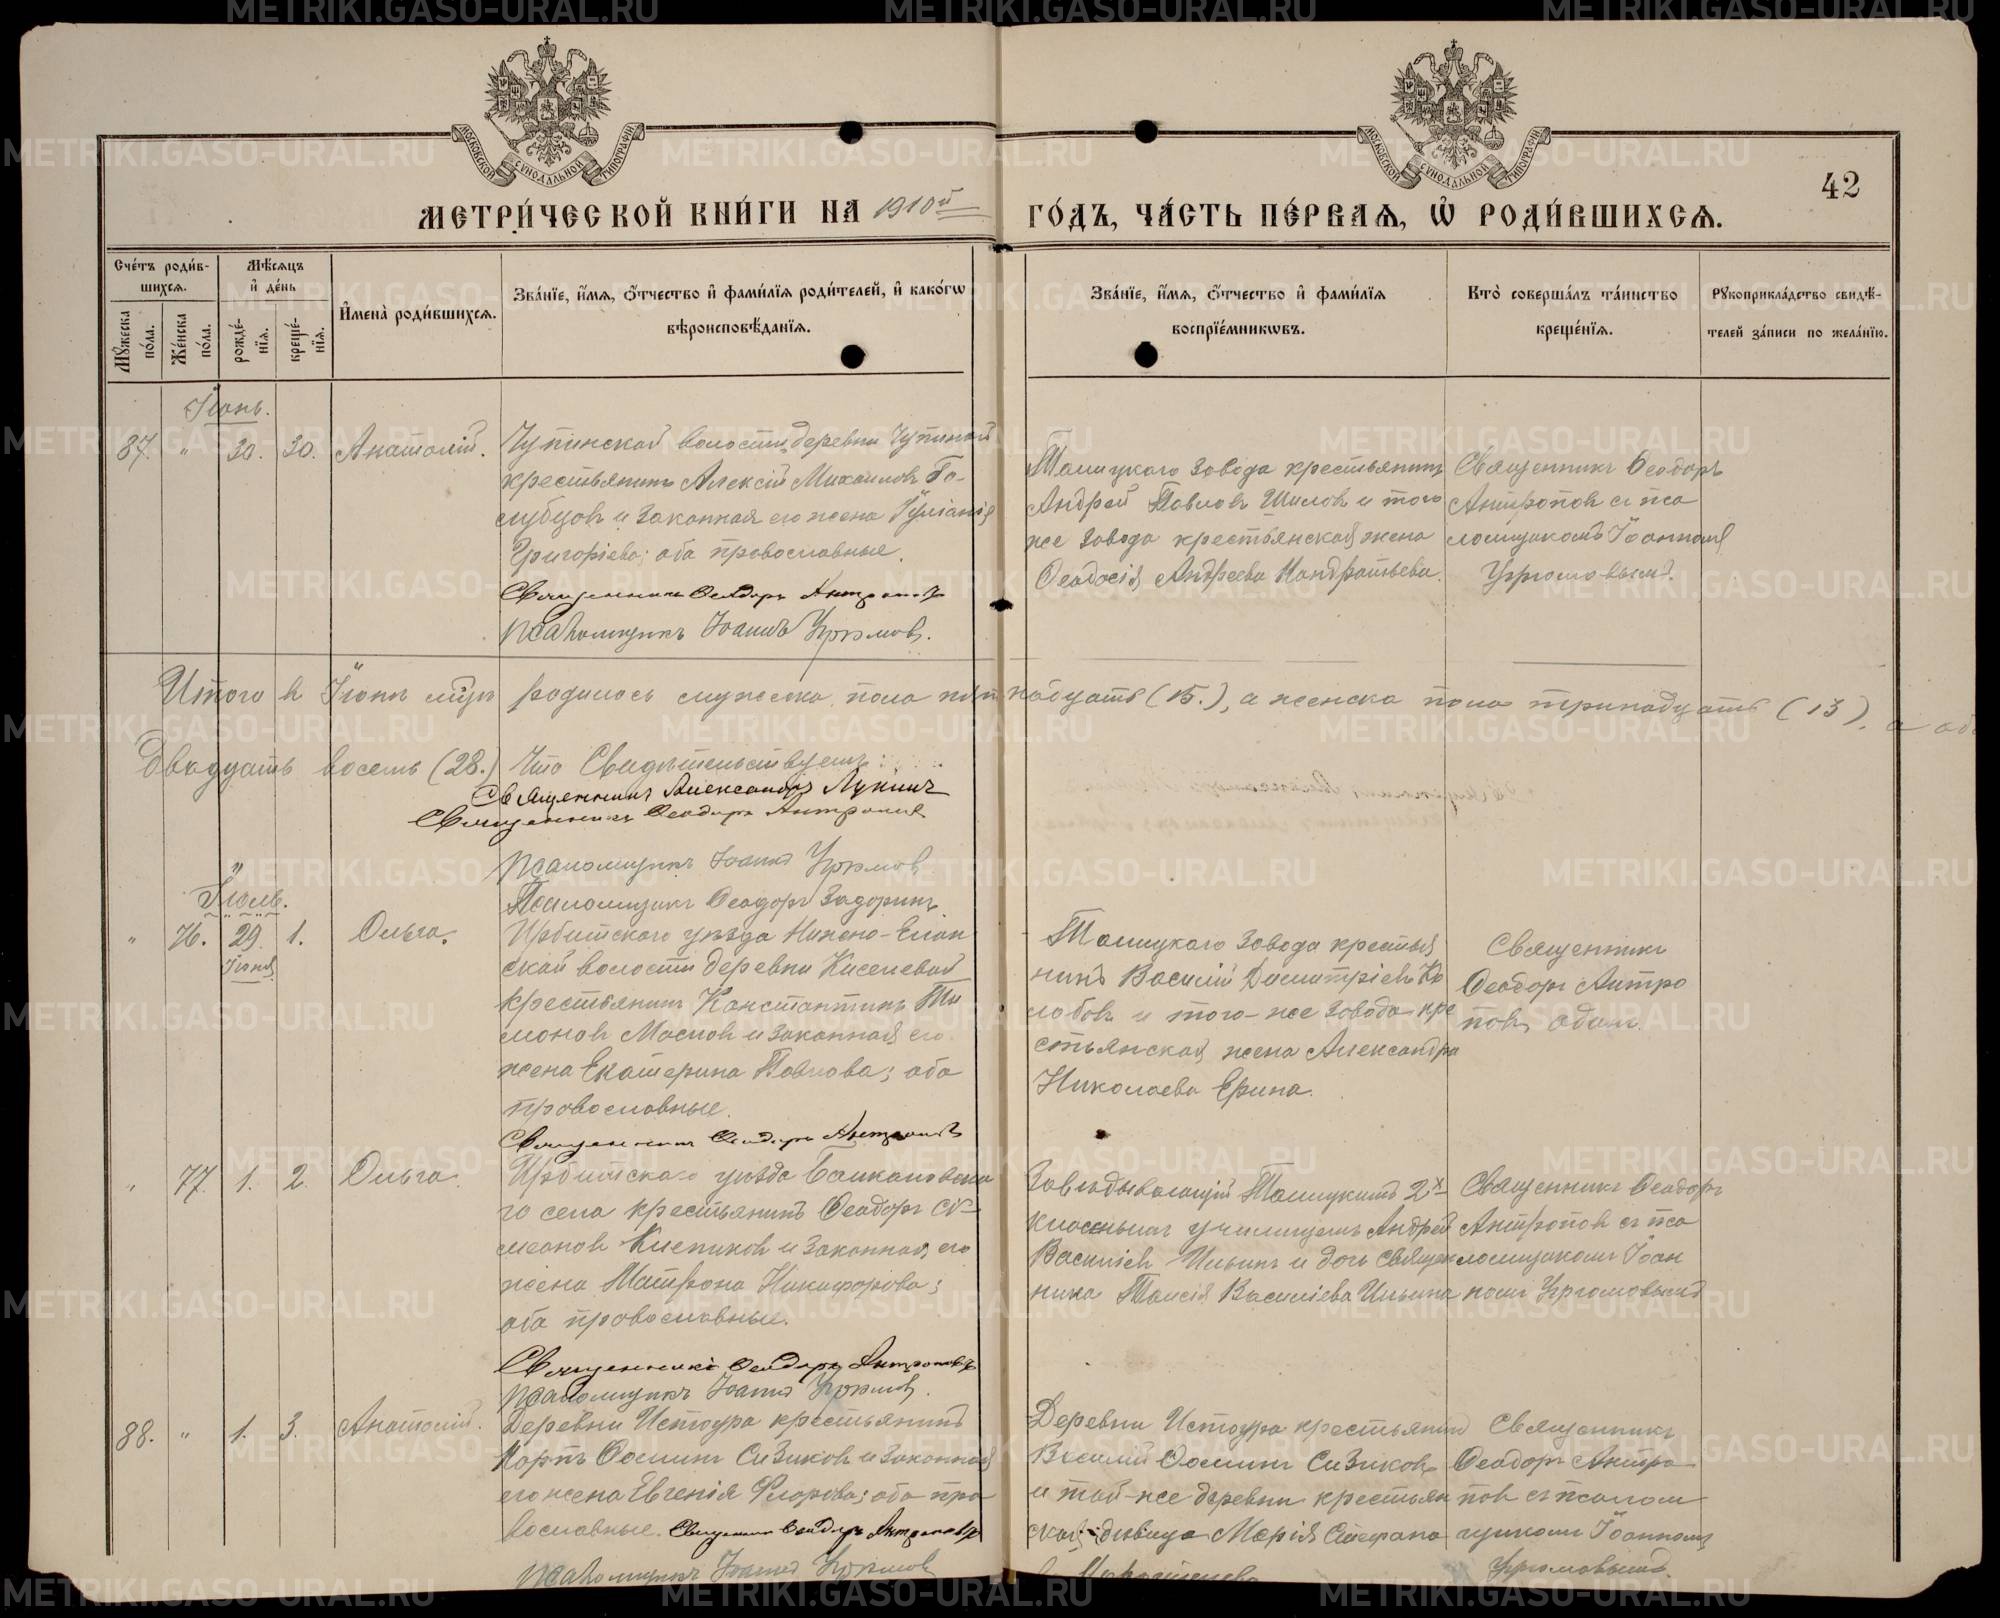 МЕТРИ́ЧЕСКОЙ КНИ́ГИ НА 1910й
ГО́ДЪ, ЧА́СТЬ ПЕ́РВАѦ, Ѡ҆ РОДИ́ВШИХСѦ.
42
Сче́тъ роди́в-
шихсѧ.
Мѣ́сѧцъ
и҆ де́нь
Мꙋ́жеска
по́ла.
Же́нска
по́ла.
рожде́-
нїѧ.
креще́-
нїѧ.
И҆мена̀ роди́вшихсѧ.
Зва́нїе, и҆́мѧ, ѻ҆́тчество и҆ фами́лїѧ роди́телей, и҆ како́гѡ
вѣроисповѣ́данїѧ.
Зва́нїе, и҆́мѧ, ѻ҆́тчество и҆ фами́лїѧ
воспрїе́мникѡвъ.
Кто̀ соверша́лъ та́инство
креще́нїѧ.
Рꙋкоприкла́дство свидѣ́-
телей за́писи по жела́нїю.
Іюнь.
87. " 30. 30. Анатолій.
Чупинской волости деревни Чупиной
крестьянинъ Алексій Михаиловъ Го-
лубцовъ и законная его жена Іуліанія
Григоріева; оба православные.
Священникъ Ѳеодоръ Антроповъ
Псаломщикъ Іоаннъ Угрюмовъ.
Талицкаго завода крестьянинъ
Андрей Павловъ Шиловъ и того
же завода крестьянская жена
Ѳеодосія Андреева Кондратьева.
Священникъ Ѳеодоръ
Антроповъ съ пса
ломщикомъ Іоанномъ
Угрюмовымъ.
Итого въ Іюнѣ мцѣ родилось мужеска пола пятнадцать (15.), а женска пола тринадцать (13), а
Двадцать восемь (28.) Что Свидѣтельствуемъ:
Священникъ Александръ Лукинъ
Священникъ Ѳеодоръ Антроповъ
Псаломщикъ Іоаннъ Угрюмовъ
Псаломщикъ Ѳеодоръ Задоринъ
Іюль.
" 76. 29. 1. Ольга.
Іюня
Ирбитскаго уѣзда Нижне-Елан
ской волости деревни Киселевой
крестьянинъ Константинъ Ти
моновъ Масловъ и законная его
жена Екатерина Павлова; оба
православные.
Священникъ Ѳеодоръ Антроповъ
Талицкаго завода крестья
нинъ Василій Димитріевъ Ко
лобовъ и того-же завода кре
стьянская жена Александра
Николаева Ерина.
Священникъ
Ѳеодоръ Антро
повъ одинъ.
" 77. 1. 2. Ольга.
Ирбитскаго уѣзда
го села крестьянинъ Ѳеодоръ Си-
меоновъ и законная его
жена Матрона Никифорова;
оба православные.
Священникъ Ѳеодоръ Антроповъ
Псаломщикъ Іоаннъ Угрюмовъ.
Завѣдывающій Талицкимъ 2х-
класснымъ училищемъ Андрей
Васильевъ Ильинъ и дочь священ
ника Таисія Василіева Ильина
Священникъ Ѳеодоръ
Антроповъ съ пса
ломщикомъ Іоан
номъ Угрюмовымъ
88. " 1. 3. Анатолій.
Деревни Истоура крестьянинъ
Карпъ Ѳоминъ Сизиковъ и законная
его жена Евгенія Флорова; оба пра
вославные. Священникъ Ѳеодоръ Антроповъ
Псаломщикъ Іоаннъ Угрюмовъ
Деревни Истоура крестьянинъ
Василій Ѳоминъ Сизиковъ
и той-же деревни крестьян
ская дѣвица Марія Стефано
Священникъ
Ѳеодоръ Антро
повъ съ псалом
щикомъ Іоанномъ
Угрюмовымъ.